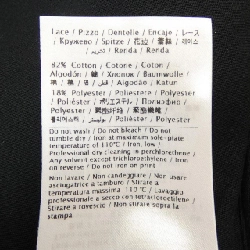 Lace / Pizzo / Dentelle / Encaje / レース
/ Кружено / Spitze / 花边 / 蕾絲 / 레이스
/ Renda / Renda
82% Cotton / Cotone / Coton /
Algodón / 綿 / Хлопок / Baumwolle
/ 棉 / 棉 / 면 / Algodão / Katun
18% Polyester / Poliestere / Polyester
/ Poliéster / ポリエステル / Полиэфир /
Polyester / 聚酯纤维 / 聚酯纖維 /
폴리에스터 / Poliéster / Poliester
Do not wash / Do not bleach / Do not
tumble dry / Iron at maximum sole plate
temperature of 110°C / Iron, low /
Professional dry cleaning in perchlorethylene /
Any solvent except trichloroethylene / Iron
on reverse / Do not iron on print
Non lavare / Non candeggiare / Non usare
asciugatrice a tamburo / Stirare a
temperatura massima 110°C / Lavaggio
professionale a secco con tetracloroetilene /
Stirare a rovescio / Non stirare sopra la
stampa